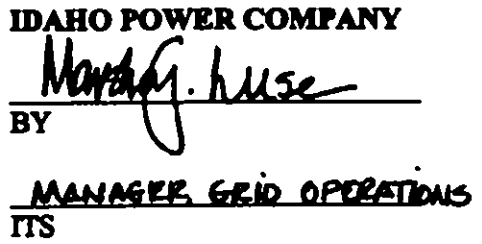 IDAHO POWER COMPANY
Luse
BY
MANAGER GRID OPERATIONS
ITS